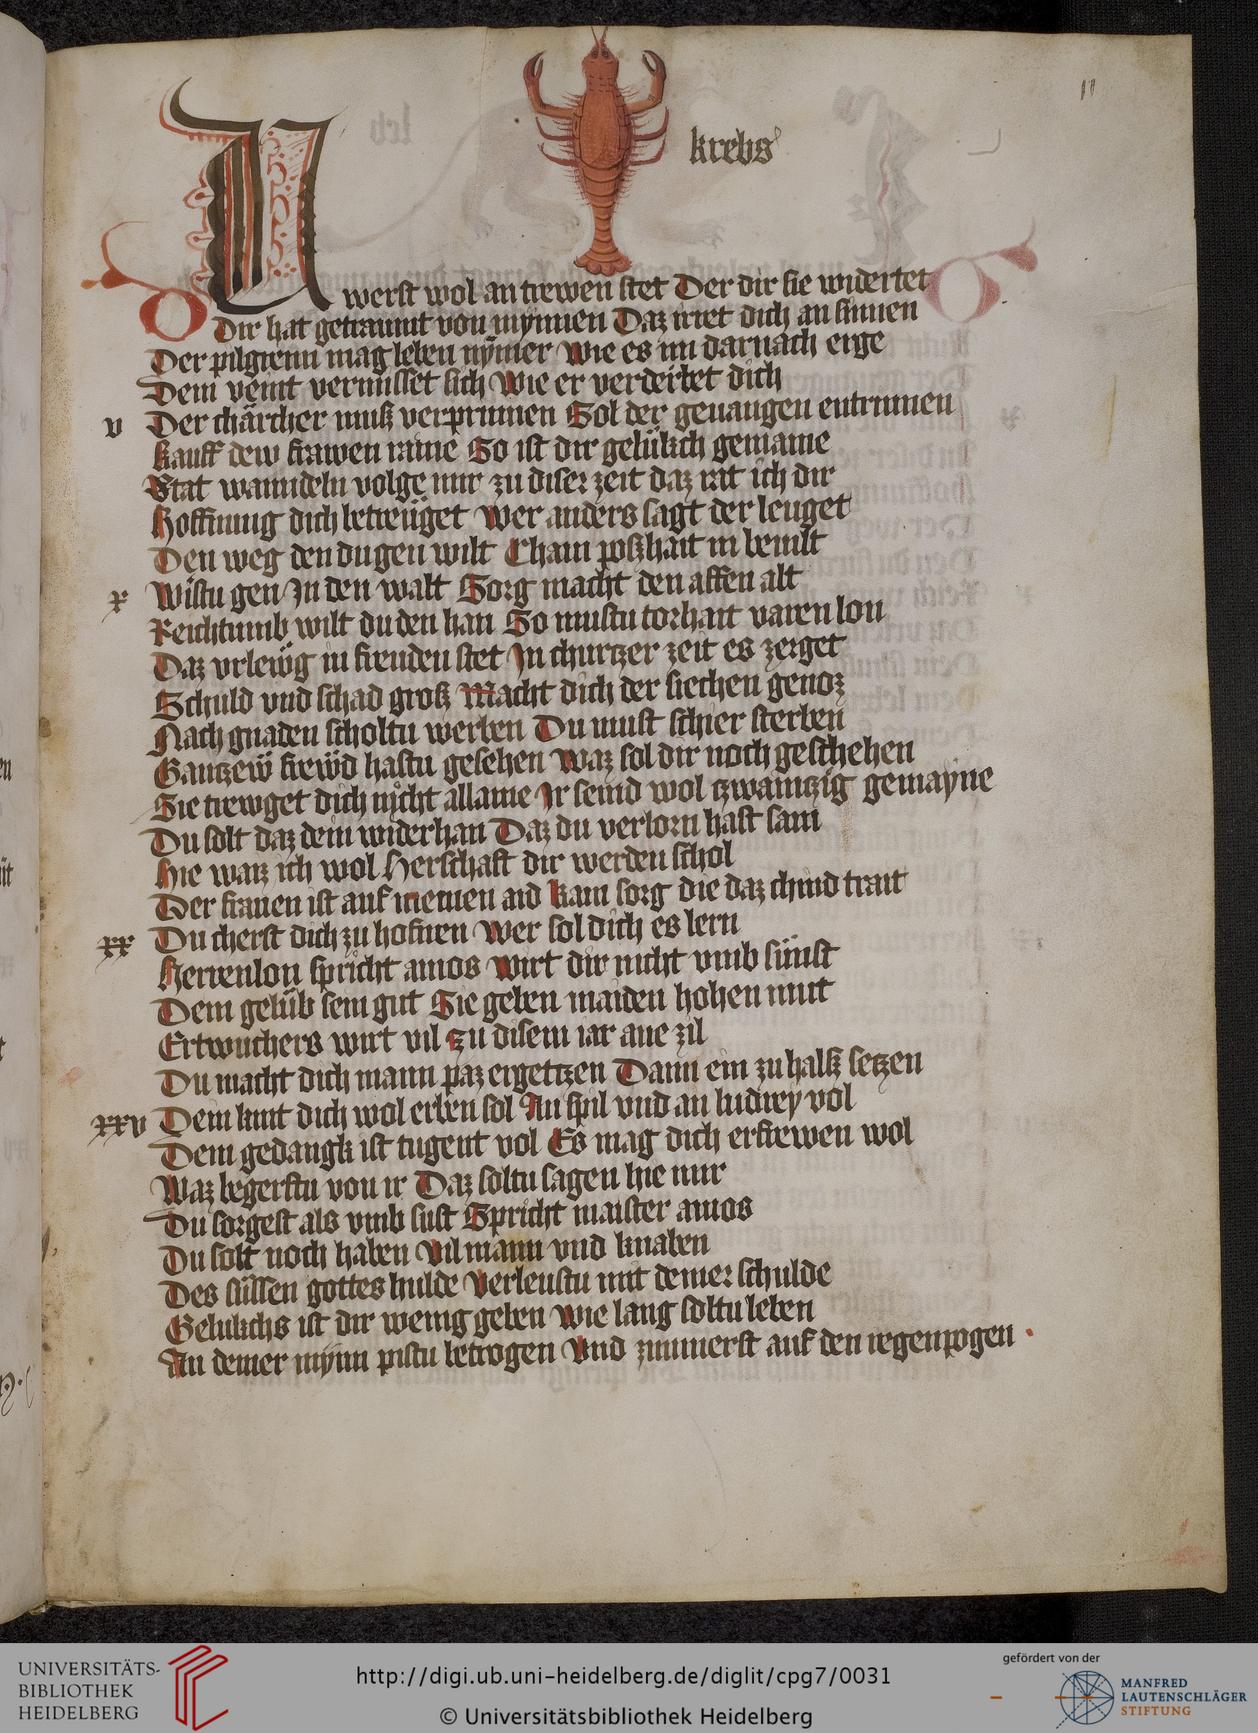 11
krebs
U werst wol an trewen stet Der dir sie widertet
Dir hat getraumt von mynnen Daz irret dich an sinnen
Der pilgreim mag leben nymer Wie es im darnach erge
Dein veint vermisset sich Wie er verderbet dich
v Der chärcher muß verprinnen Sol der geuangen entrinnen
kauff dew frawen raine So ist dir gelükch gemaine
Stat wanndeln volge mir zu diser zeit daz rat ich dir
Hoffnung dich betreüget Wer anders sagt der leuget
Den weg den du gen wilt Cham poßhait in bevilt
x Wistu gen In den walt Sorg macht den affen alt
Reichtumb wilt du den han So mustu torhait varen lon
Daz vrlewg in freuden stet In churtzer zeit es zerget
Schuld vnd schad groß Macht dich der siechen genoz
Nach gnaden scholtu werben Du must schier sterben
Gantzew frewd hastu gesehen Waz sol dir noch geschehen
Sie trewget dich nicht allaine Ir seind wol tzwaintzig gemayne
Du solt daz dein widerhan Daz du verlorn hast sam
Hie waiz ich wol Herschaft dir werden schol
Der frauen ist auf meinen aid kain sorg die daz chind trait
xx Du cherst dich zu hofuen Wer sol dich es lern
Herrenlon spricht amos Wirt dir nicht vmb sünst
Dem gelüb sein gut Sie geben maiden hohen mut
Ertwuchers wirt vil Zu disem iar ane zil
Du macht dich mann paz ergetzen Dann ein zu halß setzen
xxv Dein kint dich wol erben sol An spil vnd an ludrey vol
Dein gedangk ist tugent vol Es mag dich erfrewen wol
Waz begerstu von ir Daz soltu sagen hie mir
Du sorgest als vmb sust Spricht maister amos
Du solt noch haben Vil mann vnd knaben
Des süssen gottes hulde Verleustu mit deiner schulde
Gelukchs ist dir wenig geben Wie lang soltu leben
An deiner mynn pistu betrogen Vnd zimmerst auf den regenpogen
UNIVERSITÄTS-
BIBLIOTHEK
HEIDELBERG
http://digi.ub.uni-heidelberg.de/diglit/cpg7/0031
© Universitätsbibliothek Heidelberg
gefördert von der
MANFRED
LAUTENSCHLÄGER
STIFTUNG